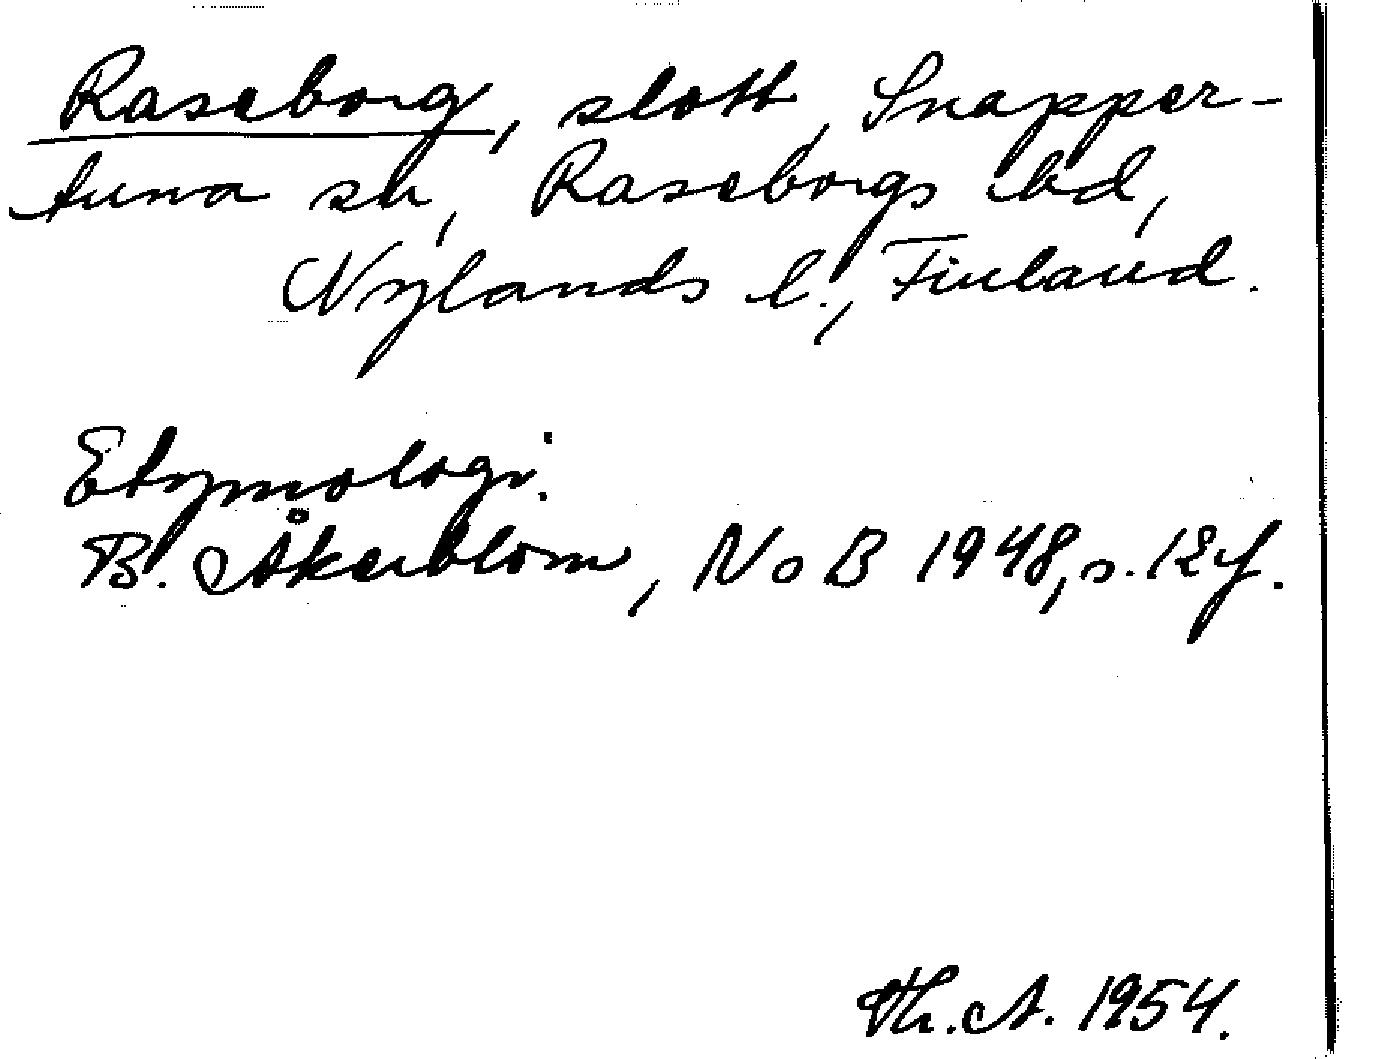 Raseborg, slott, Snapper-
tuna sn, Raseborgs hd,
Nylands l., Finland.
Etymologi.
B. Åkerblom, NoB 1948, s. 12f.
Th. A. 1954.